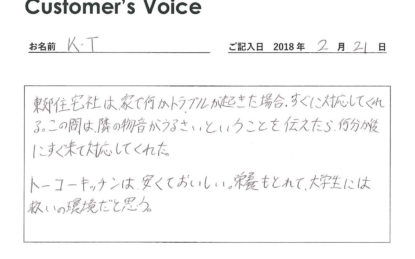 Customer's Voice
お名前 K.T ご記入日 2018年 2月 21日
東郊住宅社は、家で何かトラブルが起きた場合、すぐに対応してくれ
る。この間は、隣の物音がうるさい、ということを伝えたら、何分か後
にすぐ来て対応してくれた。
トーコーキッチンは、安くておいしい。栄養もとれて、大学生には
救いの環境だと思う。